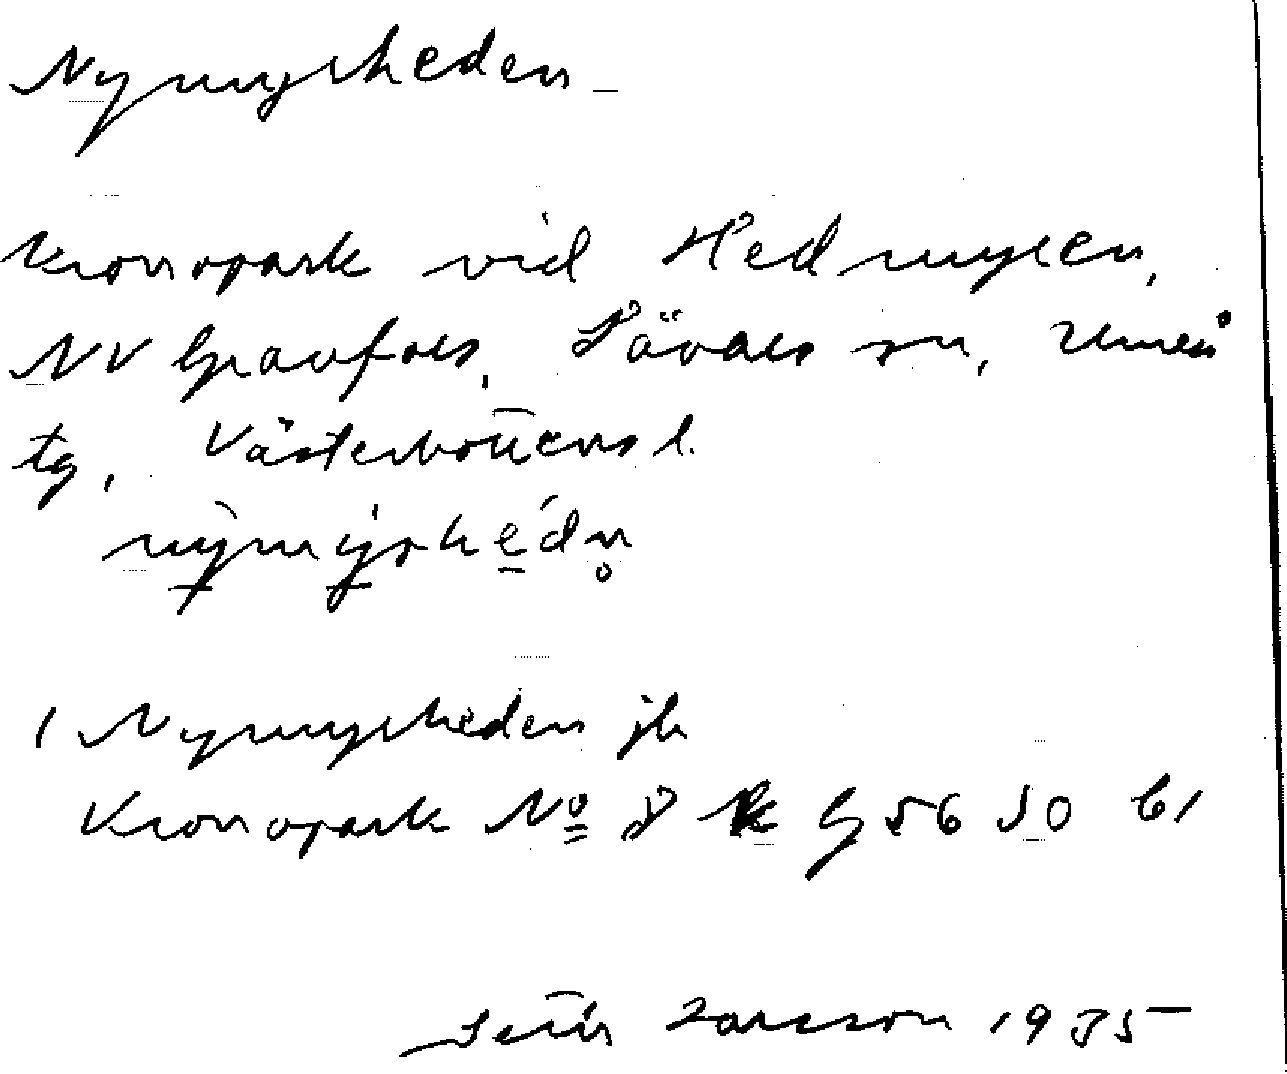 Nymyrheden
Kronopark vid Hedmyren,
NV Gravfors, Sävars sn, Umeå
tg, Västerbottens l.
1 Nymyrheden jb
Kronopark No 8 56 J0 61
Larsson 1935